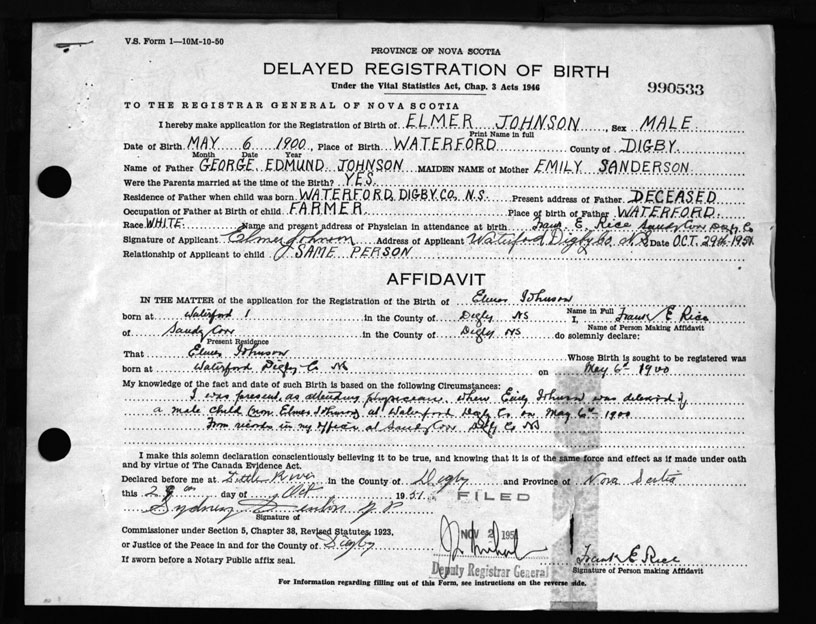 V.S. Form 1—10M-10-50
PROVINCE OF NOVA SCOTIA
DELAYED REGISTRATION OF BIRTH
Under the Vital Statistics Act, Chap. 3 Acts 1946
990533
TO THE REGISTRAR GENERAL OF NOVA SCOTIA
I hereby make application for the Registration of Birth of ELMER JOHNSON, Sex MALE
Print Name in full
Date of Birth MAY 6 1900, Place of Birth WATERFORD County of DIGBY
Month Date Year
Name of Father GEORGE EDMUND JOHNSON MAIDEN NAME of Mother EMILY SANDERSON
Were the Parents married at the time of the Birth? YES
Residence of Father when child was born WATERFORD, DIGBY CO, N.S. Present address of Father DECEASED
Occupation of Father at Birth of child FARMER Place of birth of Father WATERFORD
Race WHITE Name and present address of Physician in attendance at birth Frank E. Rice Sandy Cove Digby Co
Signature of Applicant Elmer Johnson Address of Applicant Waterford Digby Co. N.S. Date OCT. 29th 1951
Relationship of Applicant to child SAME PERSON
AFFIDAVIT
IN THE MATTER of the application for the Registration of the Birth of Elmer Johnson
Name in Full
born at Waterford in the County of Digby NS I, Frank E Rice
Name of Person Making Affidavit
of Sandy Cove in the County of Digby NS do solemnly declare:
Present Residence
That Elmer Johnson Whose Birth is sought to be registered was
born at Waterford Digby Co NS on May 6th 1900
My knowledge of the fact and date of such Birth is based on the following Circumstances:
I was present, as attending physician when Emily Johnson was delivered of
a male child (now Elmer Johnson) at Waterford Digby Co on May 6th 1900
From records in my office at Sandy Cove Digby Co NS
I make this solemn declaration conscientiously believing it to be true, and knowing that it is of the same force and effect as if made under oath
and by virtue of The Canada Evidence Act.
Declared before me at Little River in the County of Digby and Province of Nova Scotia
this 29th day of Oct 1951
FILED
Sydney Denton J.P
Signature of
Commissioner under Section 5, Chapter 38, Revised Statutes, 1923,
NOV 2 1951
or Justice of the Peace in and for the County of Digby
Frank E Rice
Deputy Registrar General
Signature of Person making Affidavit
If sworn before a Notary Public affix seal.
For Information regarding filling out of this Form, see instructions on the reverse side.